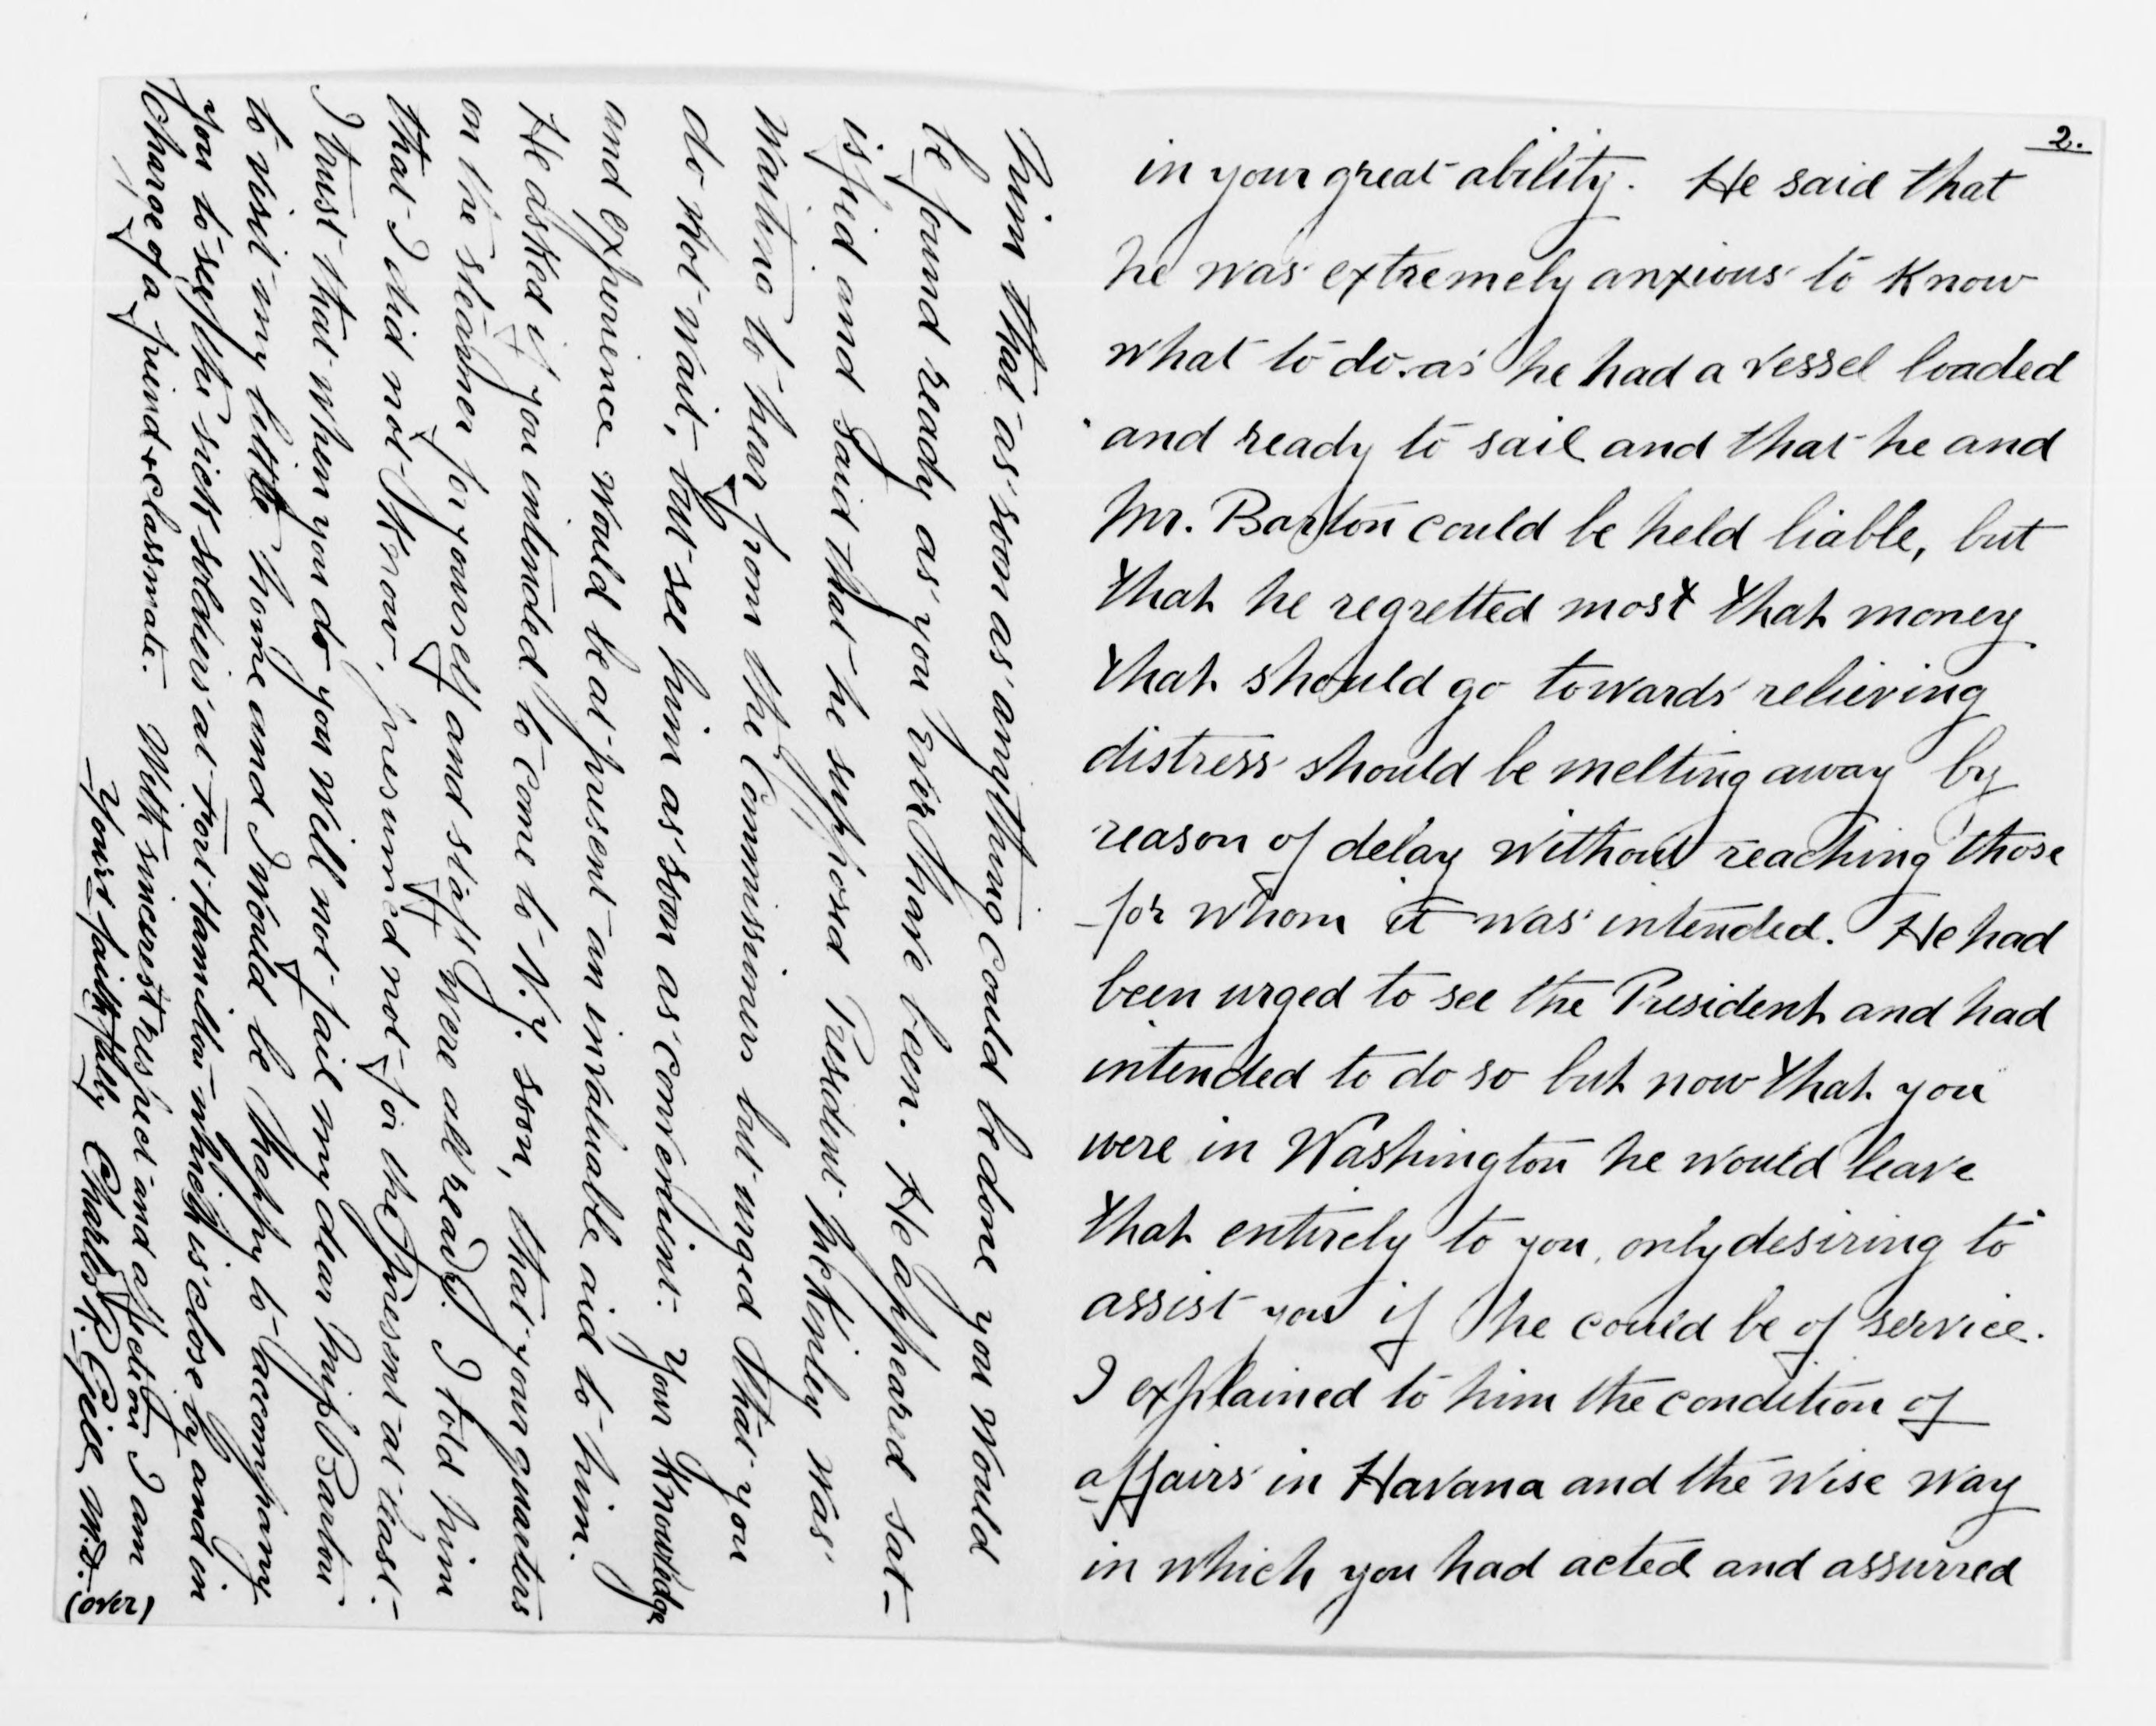 2.
in your great ability. He said that
he was extremely anxious to know
what to do. as he had a vessel loaded
and ready to sail and that he and
Mr. Barton could be held liable, but
that he regretted most that money
that should go towards relieving
distress should be melting away by
reason of delay without reaching those
for whom it was intended. He had
been urged to see the President and had
intended to do so but now that you
were in Washington he would leave
that entirely to you, only desiring to
assist you if he could be of service.
I explained to him the condition of
affairs in Havana and the wise way
in which you had acted and assurred
him that as soon as anything could be done you would
be found ready as you ever have been. He appeared sat-
isfied and said that he supposed President McKinley was
waiting to hear from the Commissioners but urged that you
do not wait, but see him as soon as convenient. Your knowledge
and experience would be at present an invaluable aid to him.
He asked if you intended to come to N.Y. soon, that your quarters
on the steamer for yourself and staff were all ready. I told him
that I did not know, presumed not for the present at least.-
I trust that when you do you will not fail my dear Miss Barton
to visit my little home and I would be happy to accompany
you to see the sick soldiers at Fort Hammilton which is close by and in
charge of a friend & classmate. With sincerest respect and affection I am
Yours faithfully Charles R. Gill M.D.
(over)